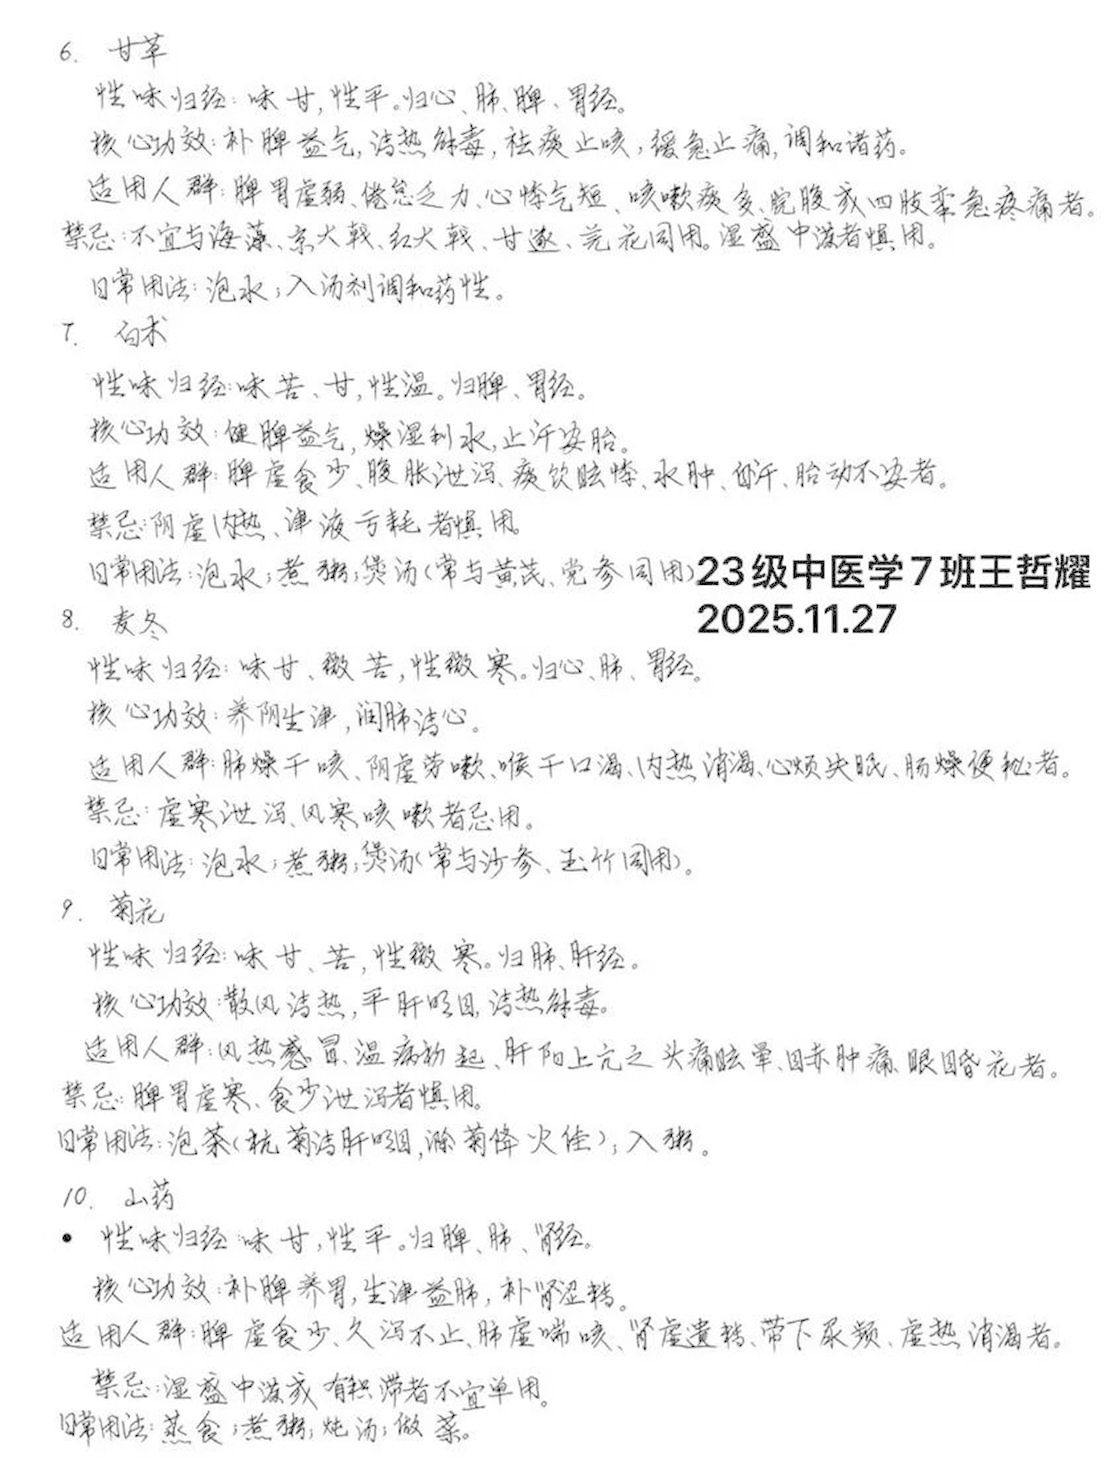 6. 甘草
性味归经:味甘,性平。归心、肺、脾、胃经。
核心功效:补脾益气,清热解毒,祛痰止咳,缓急止痛,调和诸药。
适用人群:脾胃虚弱、倦怠乏力、心悸气短、咳嗽痰多、脘腹或四肢挛急疼痛者。
禁忌:不宜与海藻、京大戟、红大戟、甘遂、芫花同用。湿盛中满者慎用。
日常用法:泡水;入汤剂调和药性。
7. 白术
性味归经:味苦、甘,性温。归脾、胃经。
核心功效:健脾益气,燥湿利水,止汗安胎。
适用人群:脾虚食少、腹胀泄泻、痰饮眩悸、水肿、自汗、胎动不安者。
禁忌:阴虚内热、津液亏耗者慎用。
日常用法:泡水;煮粥;煲汤(常与黄芪、党参同用)
23级中医学7班王哲耀
2025.11.27
8. 麦冬
性味归经:味甘、微苦,性微寒。归心、肺、胃经。
核心功效:养阴生津,润肺清心。
适用人群:肺燥干咳、阴虚劳嗽、喉干口渴、内热消渴、心烦失眠、肠燥便秘者。
禁忌:虚寒泄泻、风寒咳嗽者忌用。
日常用法:泡水;煮粥;煲汤(常与沙参、玉竹同用)。
9. 菊花
性味归经:味甘、苦,性微寒。归肺、肝经。
核心功效:散风清热,平肝明目,清热解毒。
适用人群:风热感冒、温病初起、肝阳上亢之头痛眩晕、目赤肿痛、眼目昏花者。
禁忌:脾胃虚寒、食少泄泻者慎用。
日常用法:泡茶(杭菊清肝明目,滁菊降火佳);入粥。
10. 山药
• 性味归经:味甘,性平。归脾、肺、肾经。
核心功效:补脾养胃,生津益肺,补肾涩精。
适用人群:脾虚食少、久泻不止、肺虚喘咳、肾虚遗精、带下尿频、虚热消渴者。
禁忌:湿盛中满或有积滞者不宜单用。
日常用法:蒸食;煮粥;炖汤;做菜。